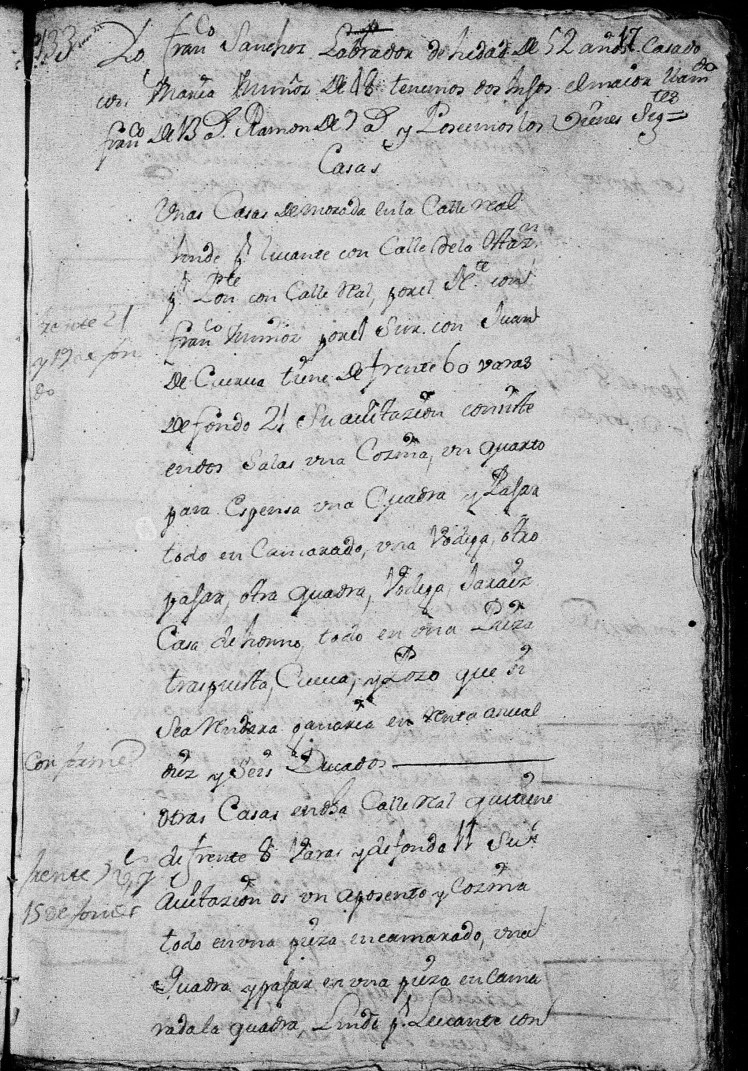 133
17
Yo Fran.co Sanchez Labrador de hedad de 52 años Casado
con Maria Muñoz de 48 tenemos dos hijos el maior llam.do
Fran.co de 13 D. Ramon de 9 D y Poseemos los Vienes Sig.tes
Casas
Unas Casas de morada en la Calle Real
linde p.r Levante con Calle de la
p.r Pon.te con Calle Real, por el N.te con
Fran.co Muñoz por el Sur con Juan
de Cueva tiene de frente 60 varas
de fondo 21 Su avitazion consiste
en dos Salas una Cozina, un quarto
para Espensa una Quadra y Pajar
todo en Camarado, una Vodega, otro
pajar, otra quadra, Vodega, Jaraiz
Casa de horno, todo en una Pieza
traspuesta, Cueva, y Pozo que si
Se a Rendara ganaria en Renta anual
diez y Seis Ducados
otras Casas en dha Calle Real que tiene
de frente 8 Varas y de fondo 11 Su
Avitazion es un aposento y Cozina
todo en una pieza encamarado, una
Quadra y pajar en una pieza en Cama
rada la quadra Linde p.r Levante con
frente 21
y 19 de fon
do
Conforme
frente
15 de fondo